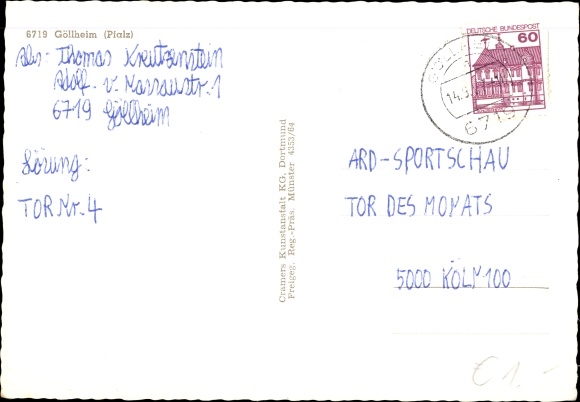 6719 Göllheim (Pfalz)
Abs.: Thomas Kreutzenstein
Adolf. v. Nassaustr. 1
6719 Göllheim
Lösung:
TOR Nr. 4
Cramers Kunstanstalt KG, Dortmund
Freigeg. Reg.-Präs. Münster 4353/64
DEUTSCHE BUNDESPOST
60
6719
ARD-SPORTSCHAU
TOR DES MONATS
5000 KÖLN 100